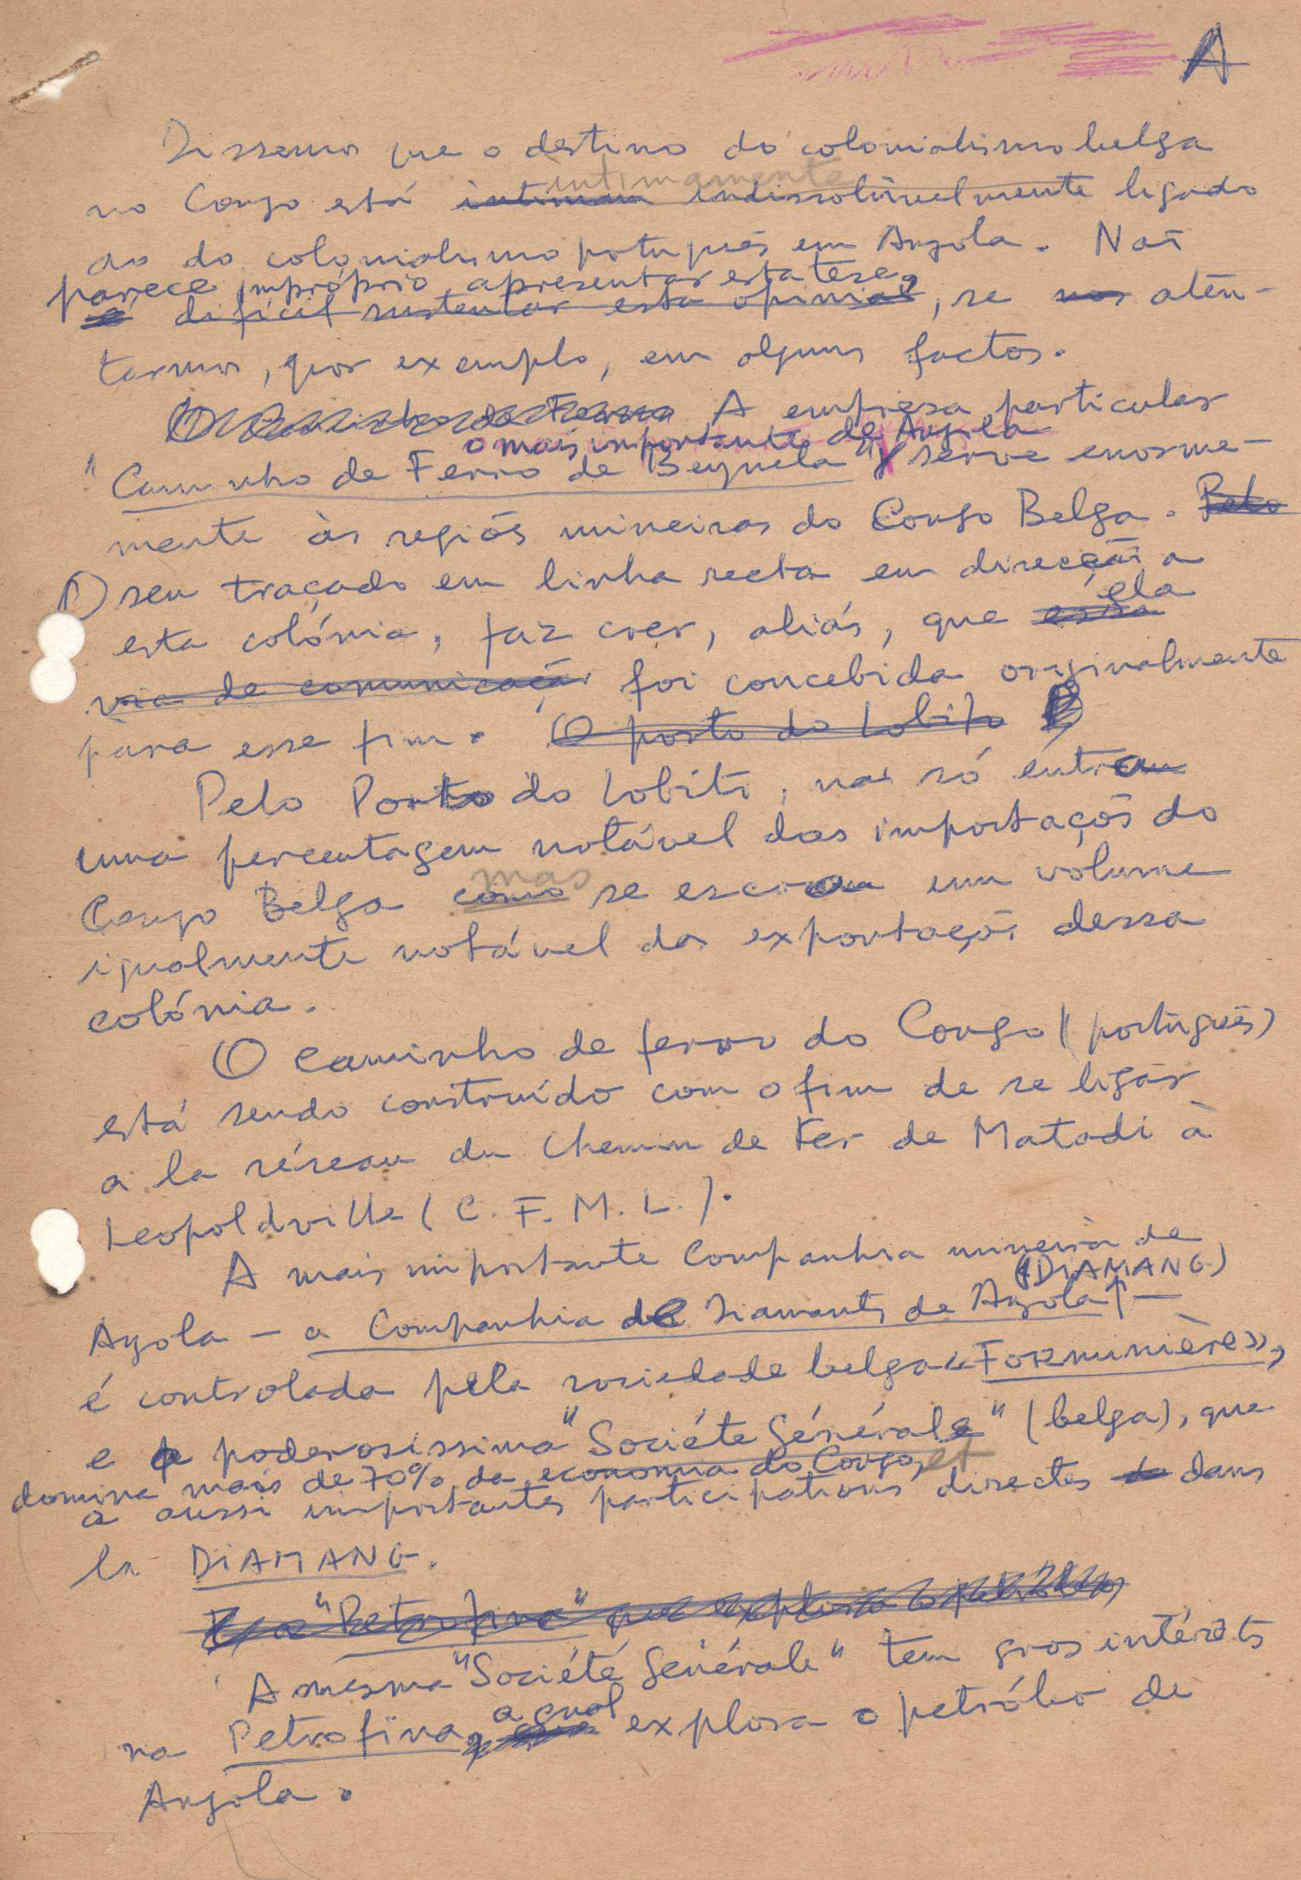 A
Dissemos que o destino do colonialismo belga
intimamente
no Congo está intimam indissoluvelmente ligado
ao do colonialismo português em Angola. Não
parece impróprio apresentar esta tese,
é difícil sustentar esta opinião, se nos aten-
tarmos, por exemplo, em alguns factos.
O Caminho de Ferro A empresa particular
a mais importante de Angola
"Caminho de Ferro de Benguela" serve enorme-
mente às regiõs mineiras do Congo Belga. Pelo
O seu traçado em linha recta em direcção a
ela
esta colónia, faz crer, aliás, que essa
via de comunicação foi concebida originalmente
para esse fim. O porto do Lobito
Pelo Porto do Lobito, não só entrou
uma percentagem notável das importaçõs do
mas
Congo Belga como se escoou um volume
igualmente notável das exportaçõs dessa
colónia.
O Caminho de ferro do Congo (português)
está sendo construído com o fim de se ligar
a la réseau du Chemin de Fer de Matadi à
Leopoldville (C. F. M. L.).
A mais importante Companhia mineira de
(DIAMANG)
Angola — a Companhia de Diamants de Angola —
é controlada pela sociedade belga «Forminière»,
e a poderosissima "Sociéte Générale" (belga), que
domina mais de 70% da economia do Congo, et
a aussi importantes participations directes dans
la DIAMANG.
E a "Petrofina" que explora o petróleo
A mesma "Société Générale" tem gros intérêts
a qual
na Petrofina, que explora o petróleo de
Angola.